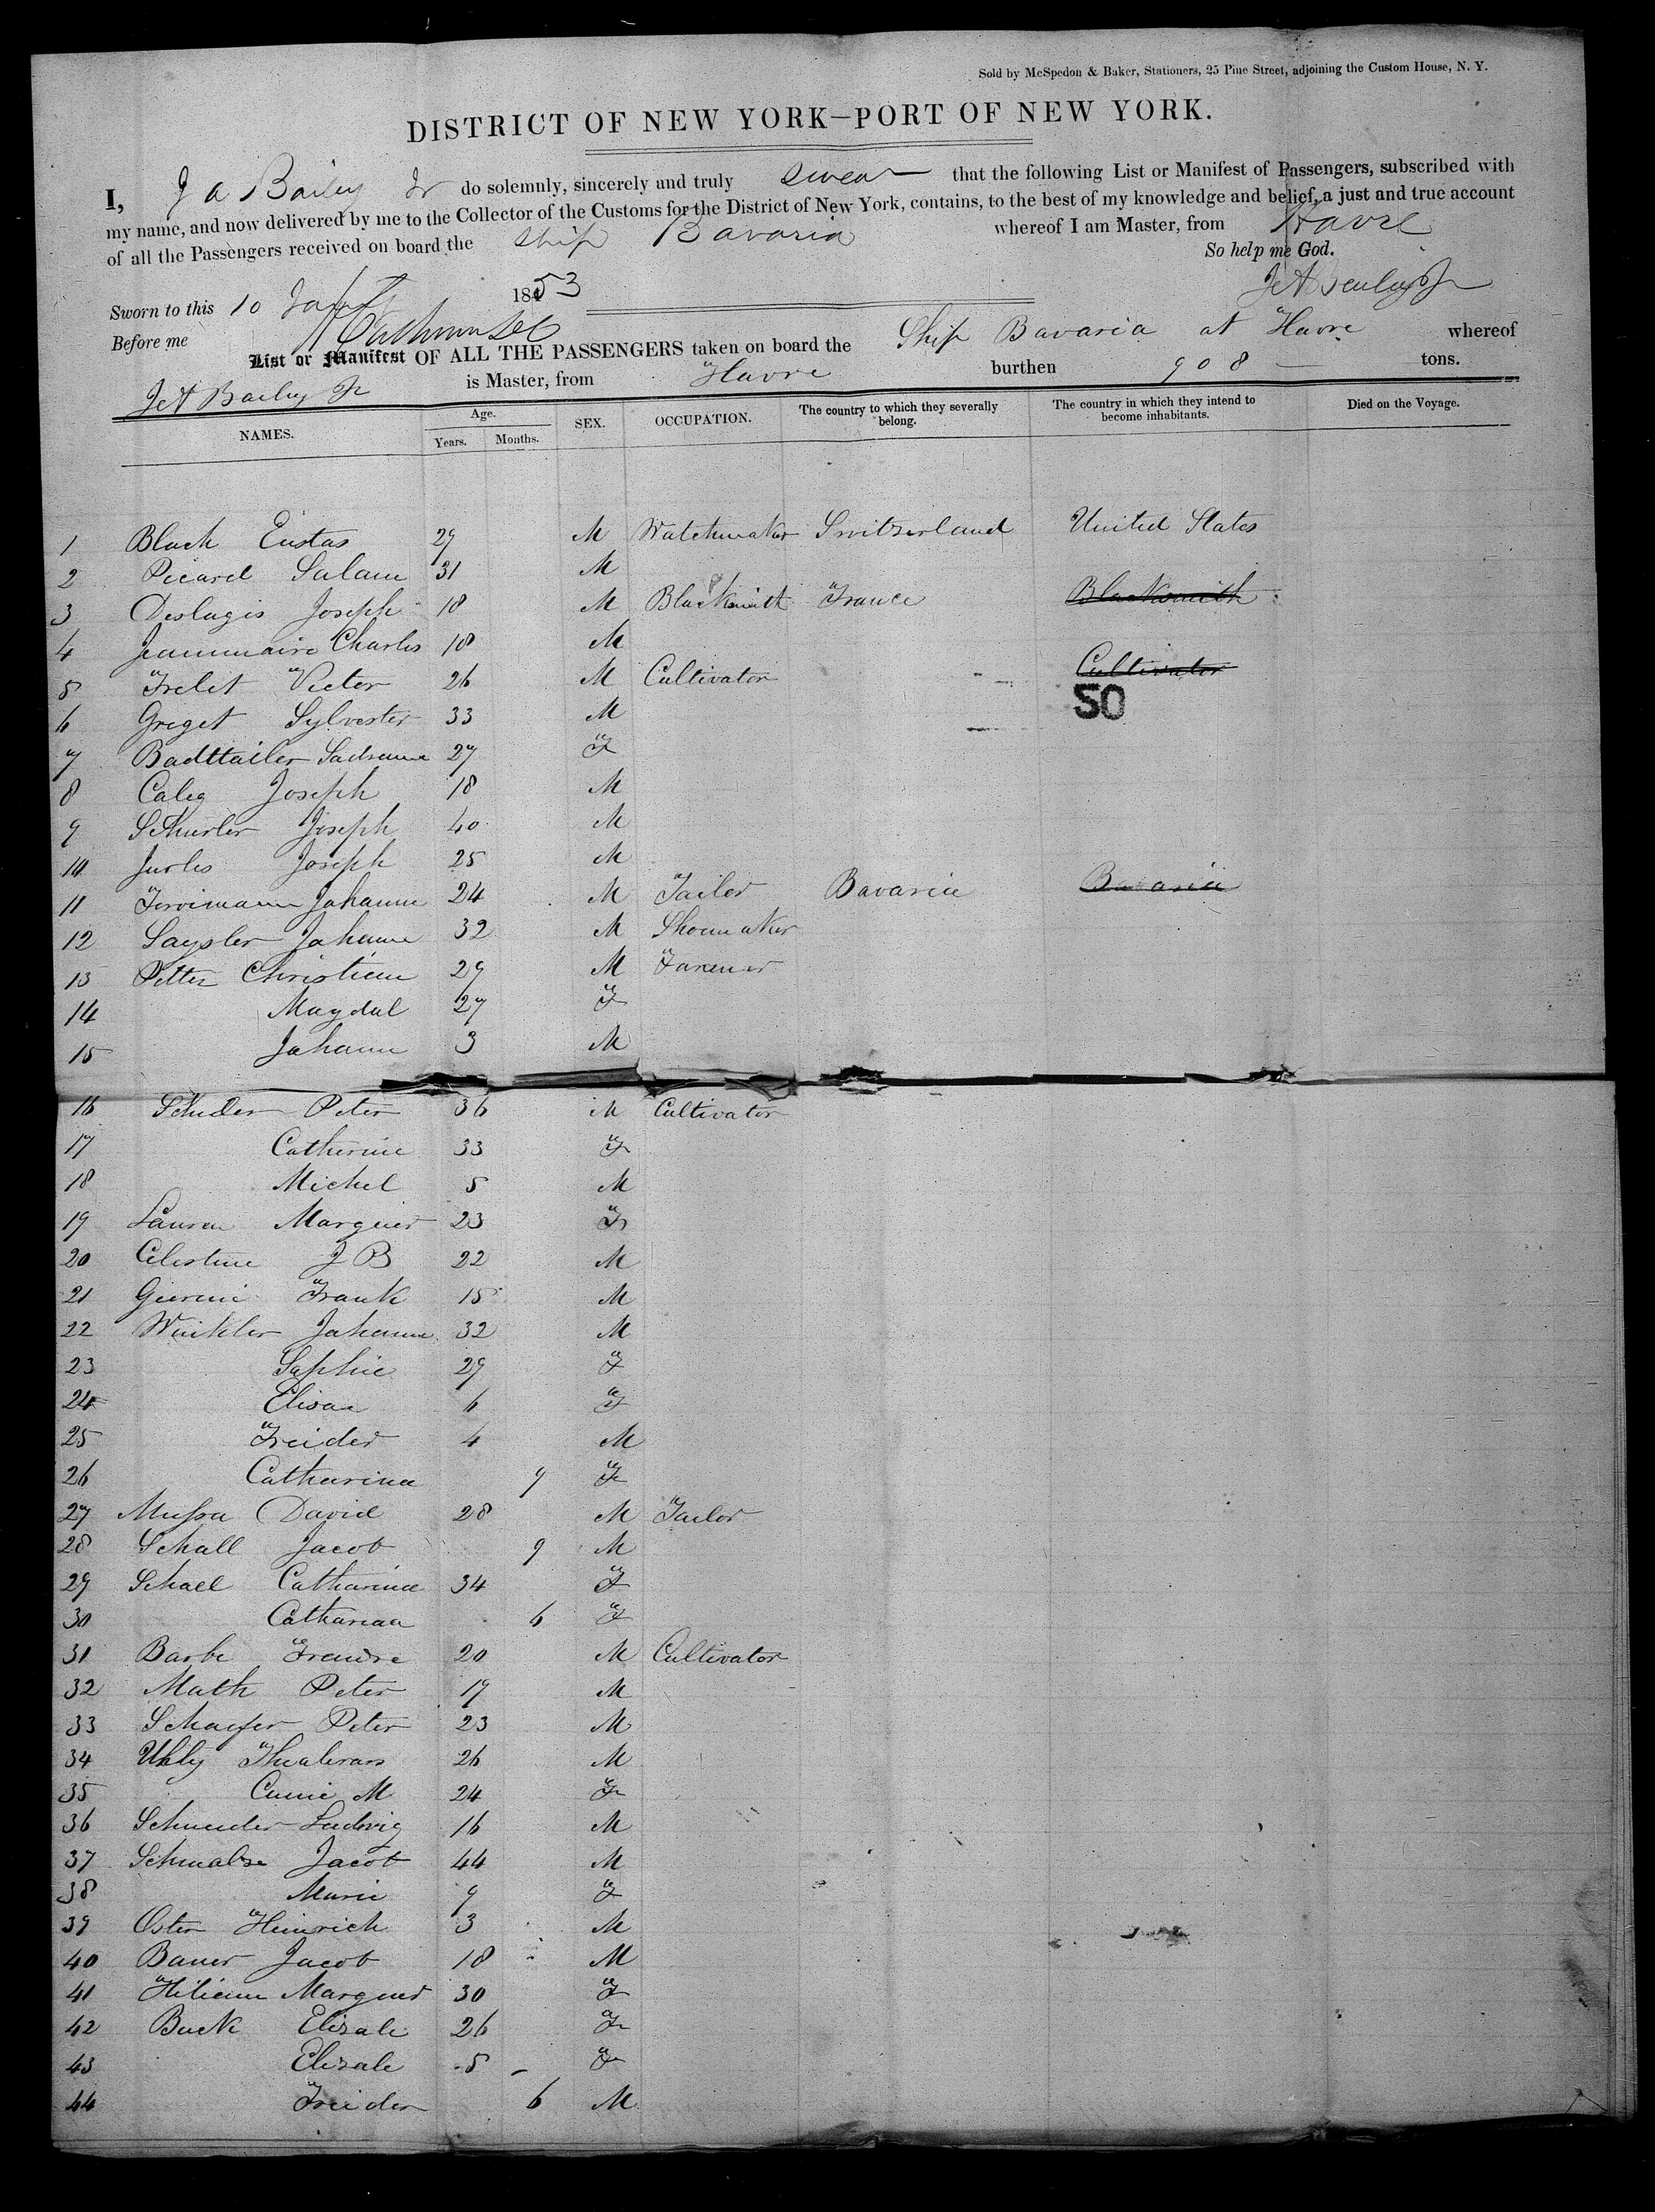 Sold by McSpedon & Baker, Stationers, 25 Pine Street, adjoining the Custom House, N. Y.
DISTRICT OF NEW YORK—PORT OF NEW YORK.
I, J A Bailey Jr do solemnly, sincerely and truly swear that the following List or Manifest of Passengers, subscribed with
my name, and now delivered by me to the Collector of the Customs for the District of New York, contains, to the best of my knowledge and belief, a just and true account
of all the Passengers received on board the Ship Bavaria whereof I am Master, from Havre
So help me God.
Sworn to this 10 1853
Before me
List or Manifest OF ALL THE PASSENGERS taken on board the Ship Bavaria at Havre whereof
J A Bailey Jr is Master, from Havre burthen 908 tons.
NAMES. Age. Years. Months. SEX. OCCUPATION. The country to which they severally belong. The country in which they intend to become inhabitants. Died on the Voyage.
1 Block Eustas 29 M Watchmaker Switzerland United States
2 Picard Salam 31 M
3 Deslagis Joseph 18 M Blacksmith France Blacksmith
4 Jeanmaire Charles 18 M
5 Frelet Victor 26 M Cultivator Cultivator
50
6 Greget Sylvester 33 M
7 27 F
8 Caleg Joseph 18 M
9 Schusler Joseph 40 M
10 Jurles Joseph 25 M
11 Johann 24 M Tailor Bavaria Bavaria
12 Saysler Johann 32 M Shoemaker
13 Petter Christian 29 M Farmer
14 Magdal 27 F
15 Johann 3 M
16 Schuder Peter 36 M Cultivator
17 Catherine 33 F
18 Michel 5 M
19 Lauren Marguer 23 F
20 Celestine J B 22 M
21 Frank 15 M
22 Winkler Johann 32 M
23 Sophie 29 F
24 Elisae 6 F
25 Freider 4 M
26 Catharina 9 F
27 David 28 M Tailor
28 Schall Jacob 9 M
29 Schael Catharina 34 F
30 Catharina 6 F
31 Barbe 20 M Cultivator
32 Math Peter 19 M
33 Schaefer Peter 23 M
34 26 M
35 M 24 F
36 Schneider Ludwig 16 M
37 Schwalse Jacob 44 M
38 Marie 9 F
39 Oster Heinrich 3 M
40 Bauer Jacob 18 M
41 Marguer 30 F
42 Buck Elisale 26 F
43 Elisale 5 F
44 Freider 6 M